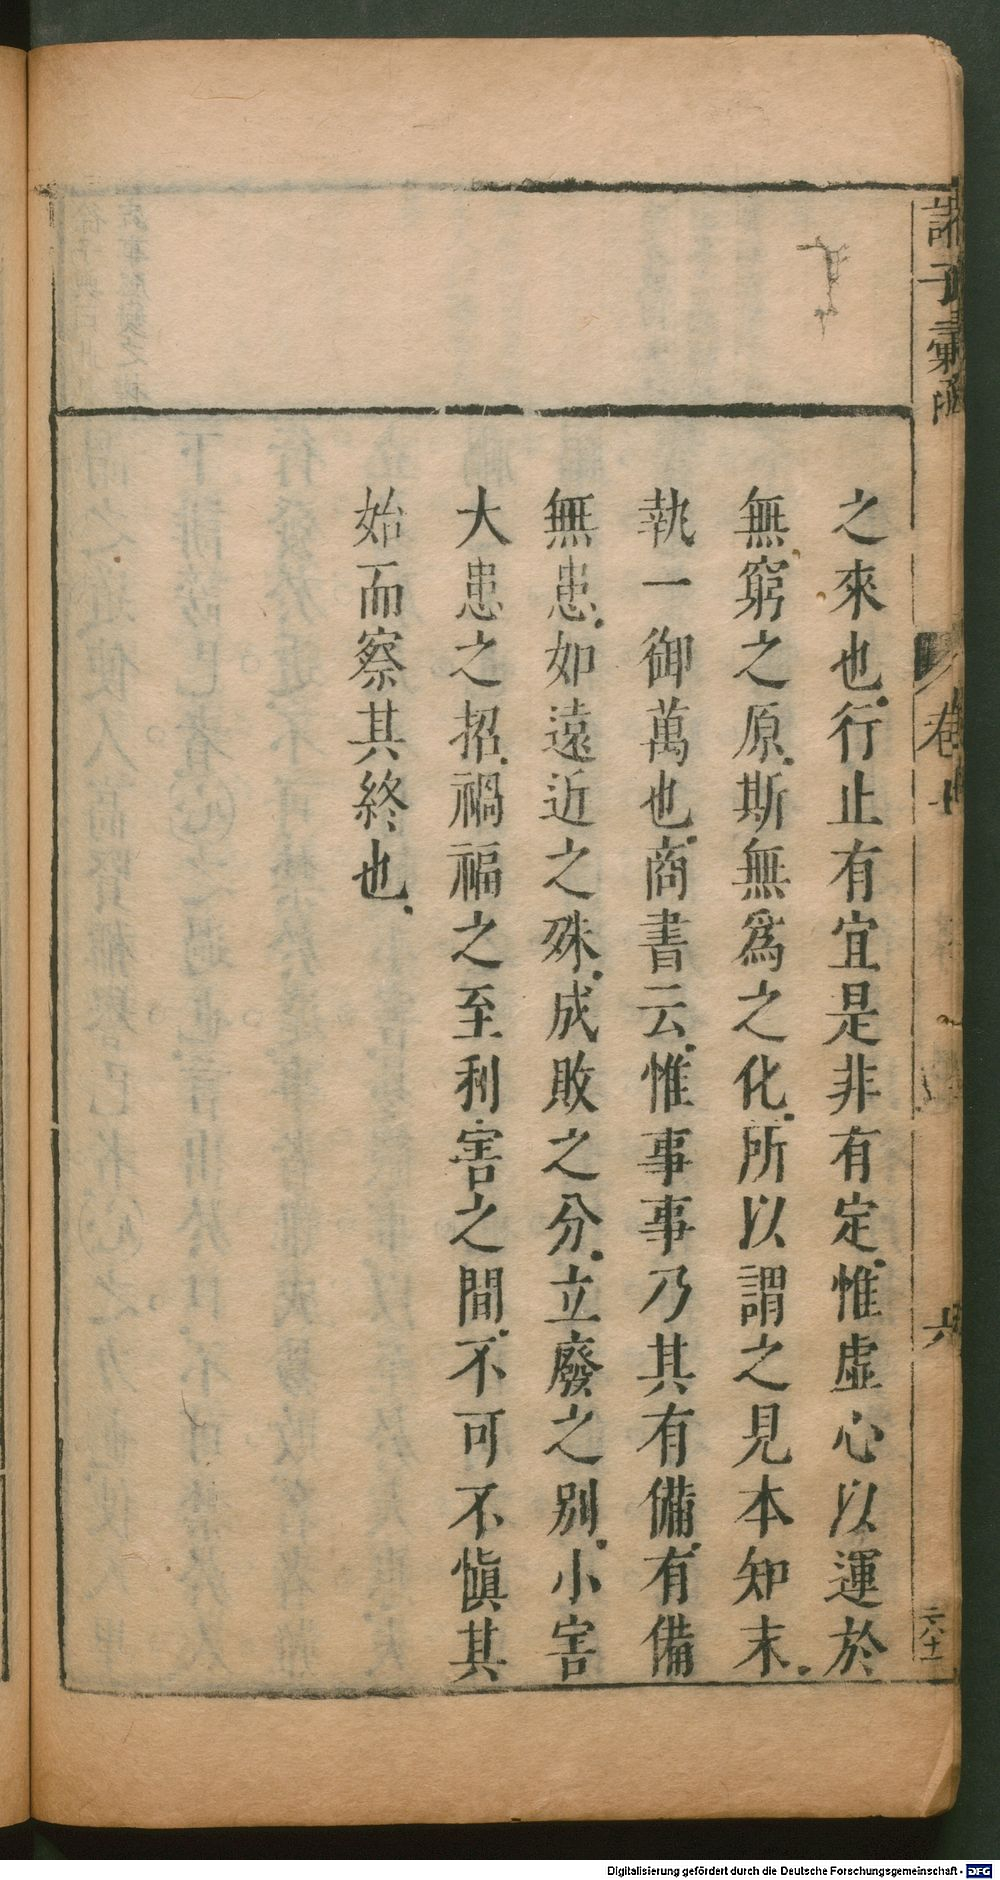 之來也行止有宜是非有定惟虛心以運於
無窮之原斯無爲之化所以謂之見本知末
執一御萬也商書云惟事事乃其有備有備
無患如遠近之殊成敗之分立廢之別小害
大患之招禍福之至利害之間不可不愼其
始而察其終也
諸子彙函
卷
Digitalisierung gefördert durch die Deutsche Forschungsgemeinschaft - DFG